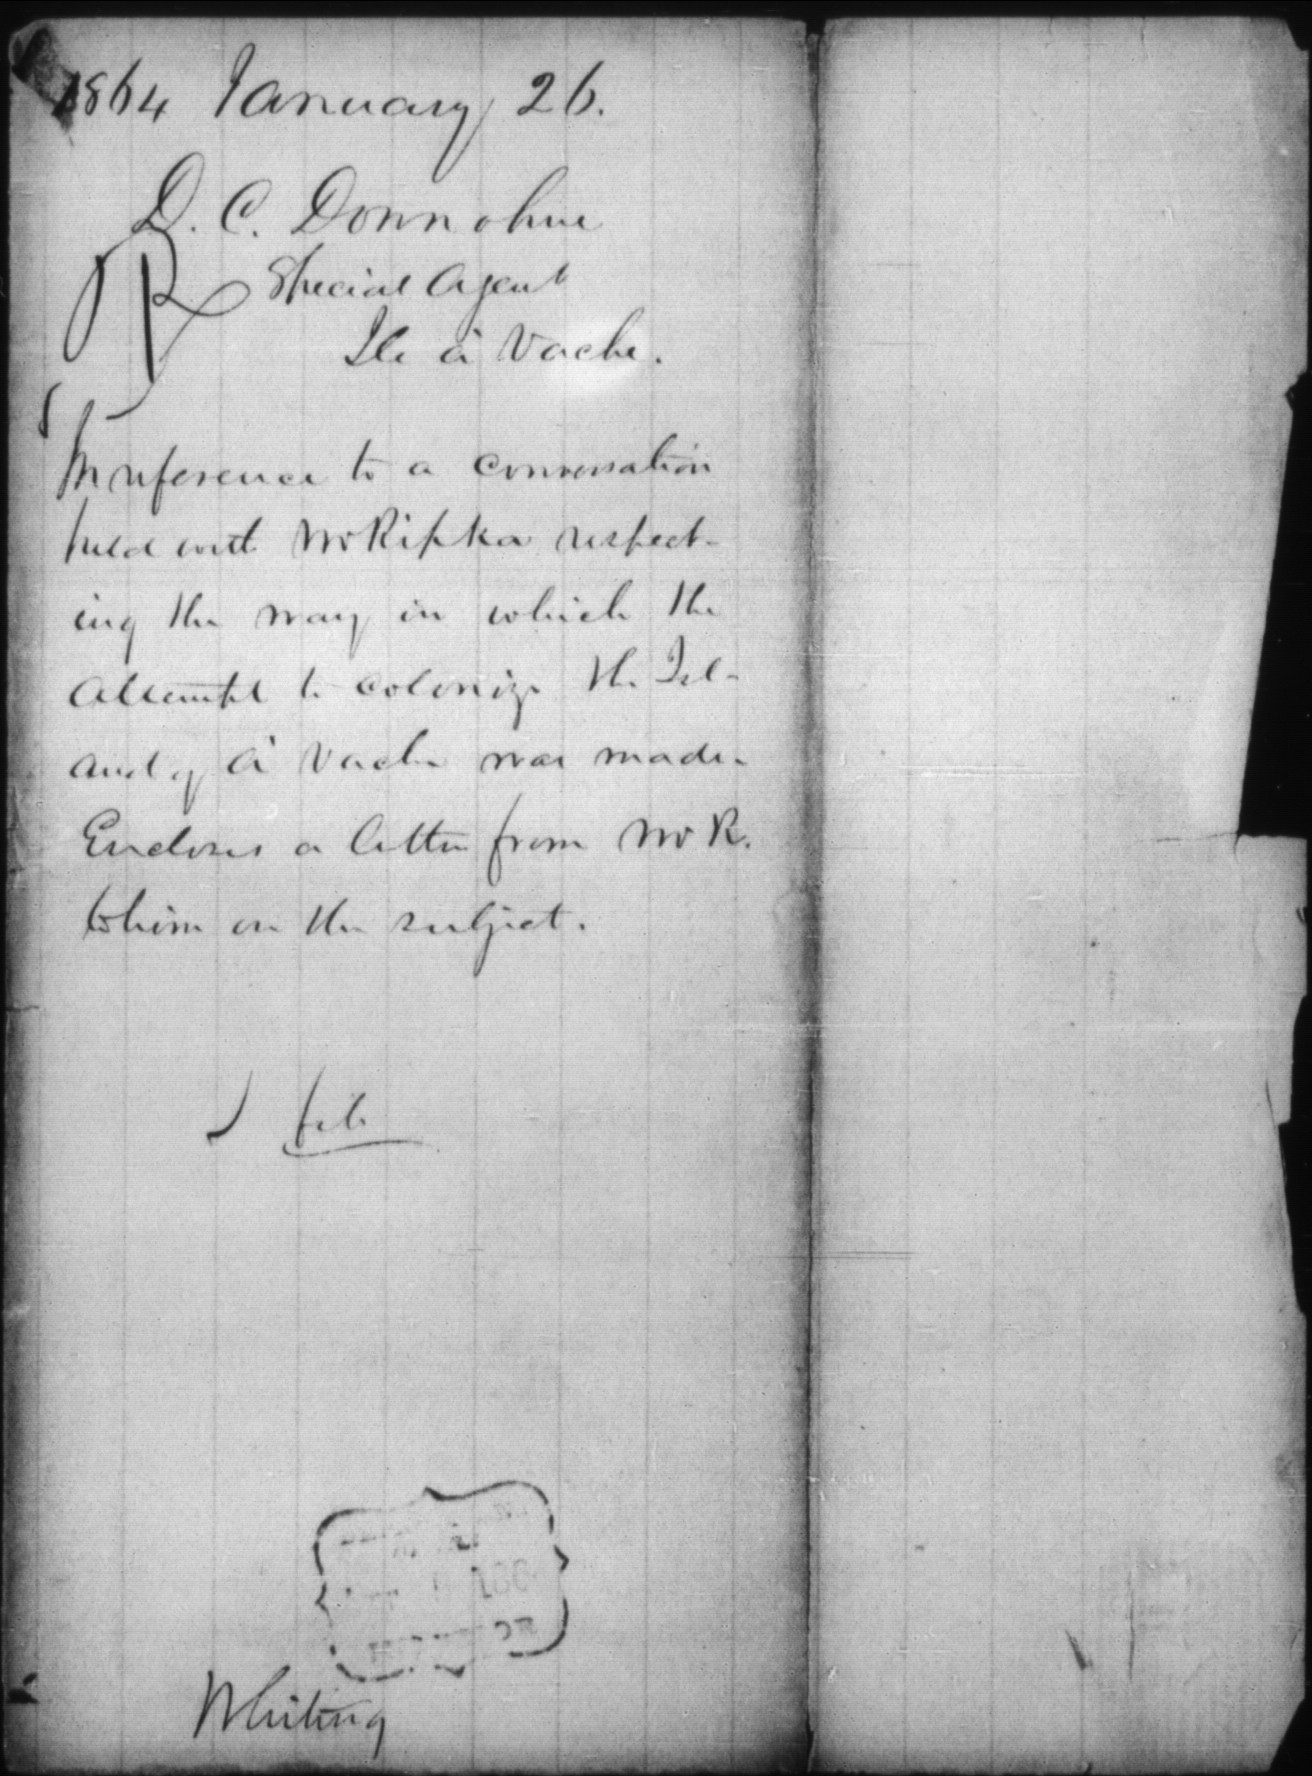 1864 January 26.
D. C. Donnohue
Special Agent
Ile à Vache.
In reference to a conversation
held with Mr Ripka respect-
ing the way in which the
attempt to colonize the Isl-
and of A' Vache was made.
Encloses a letter from Mr R.
to him on the subject.
file
Whiting